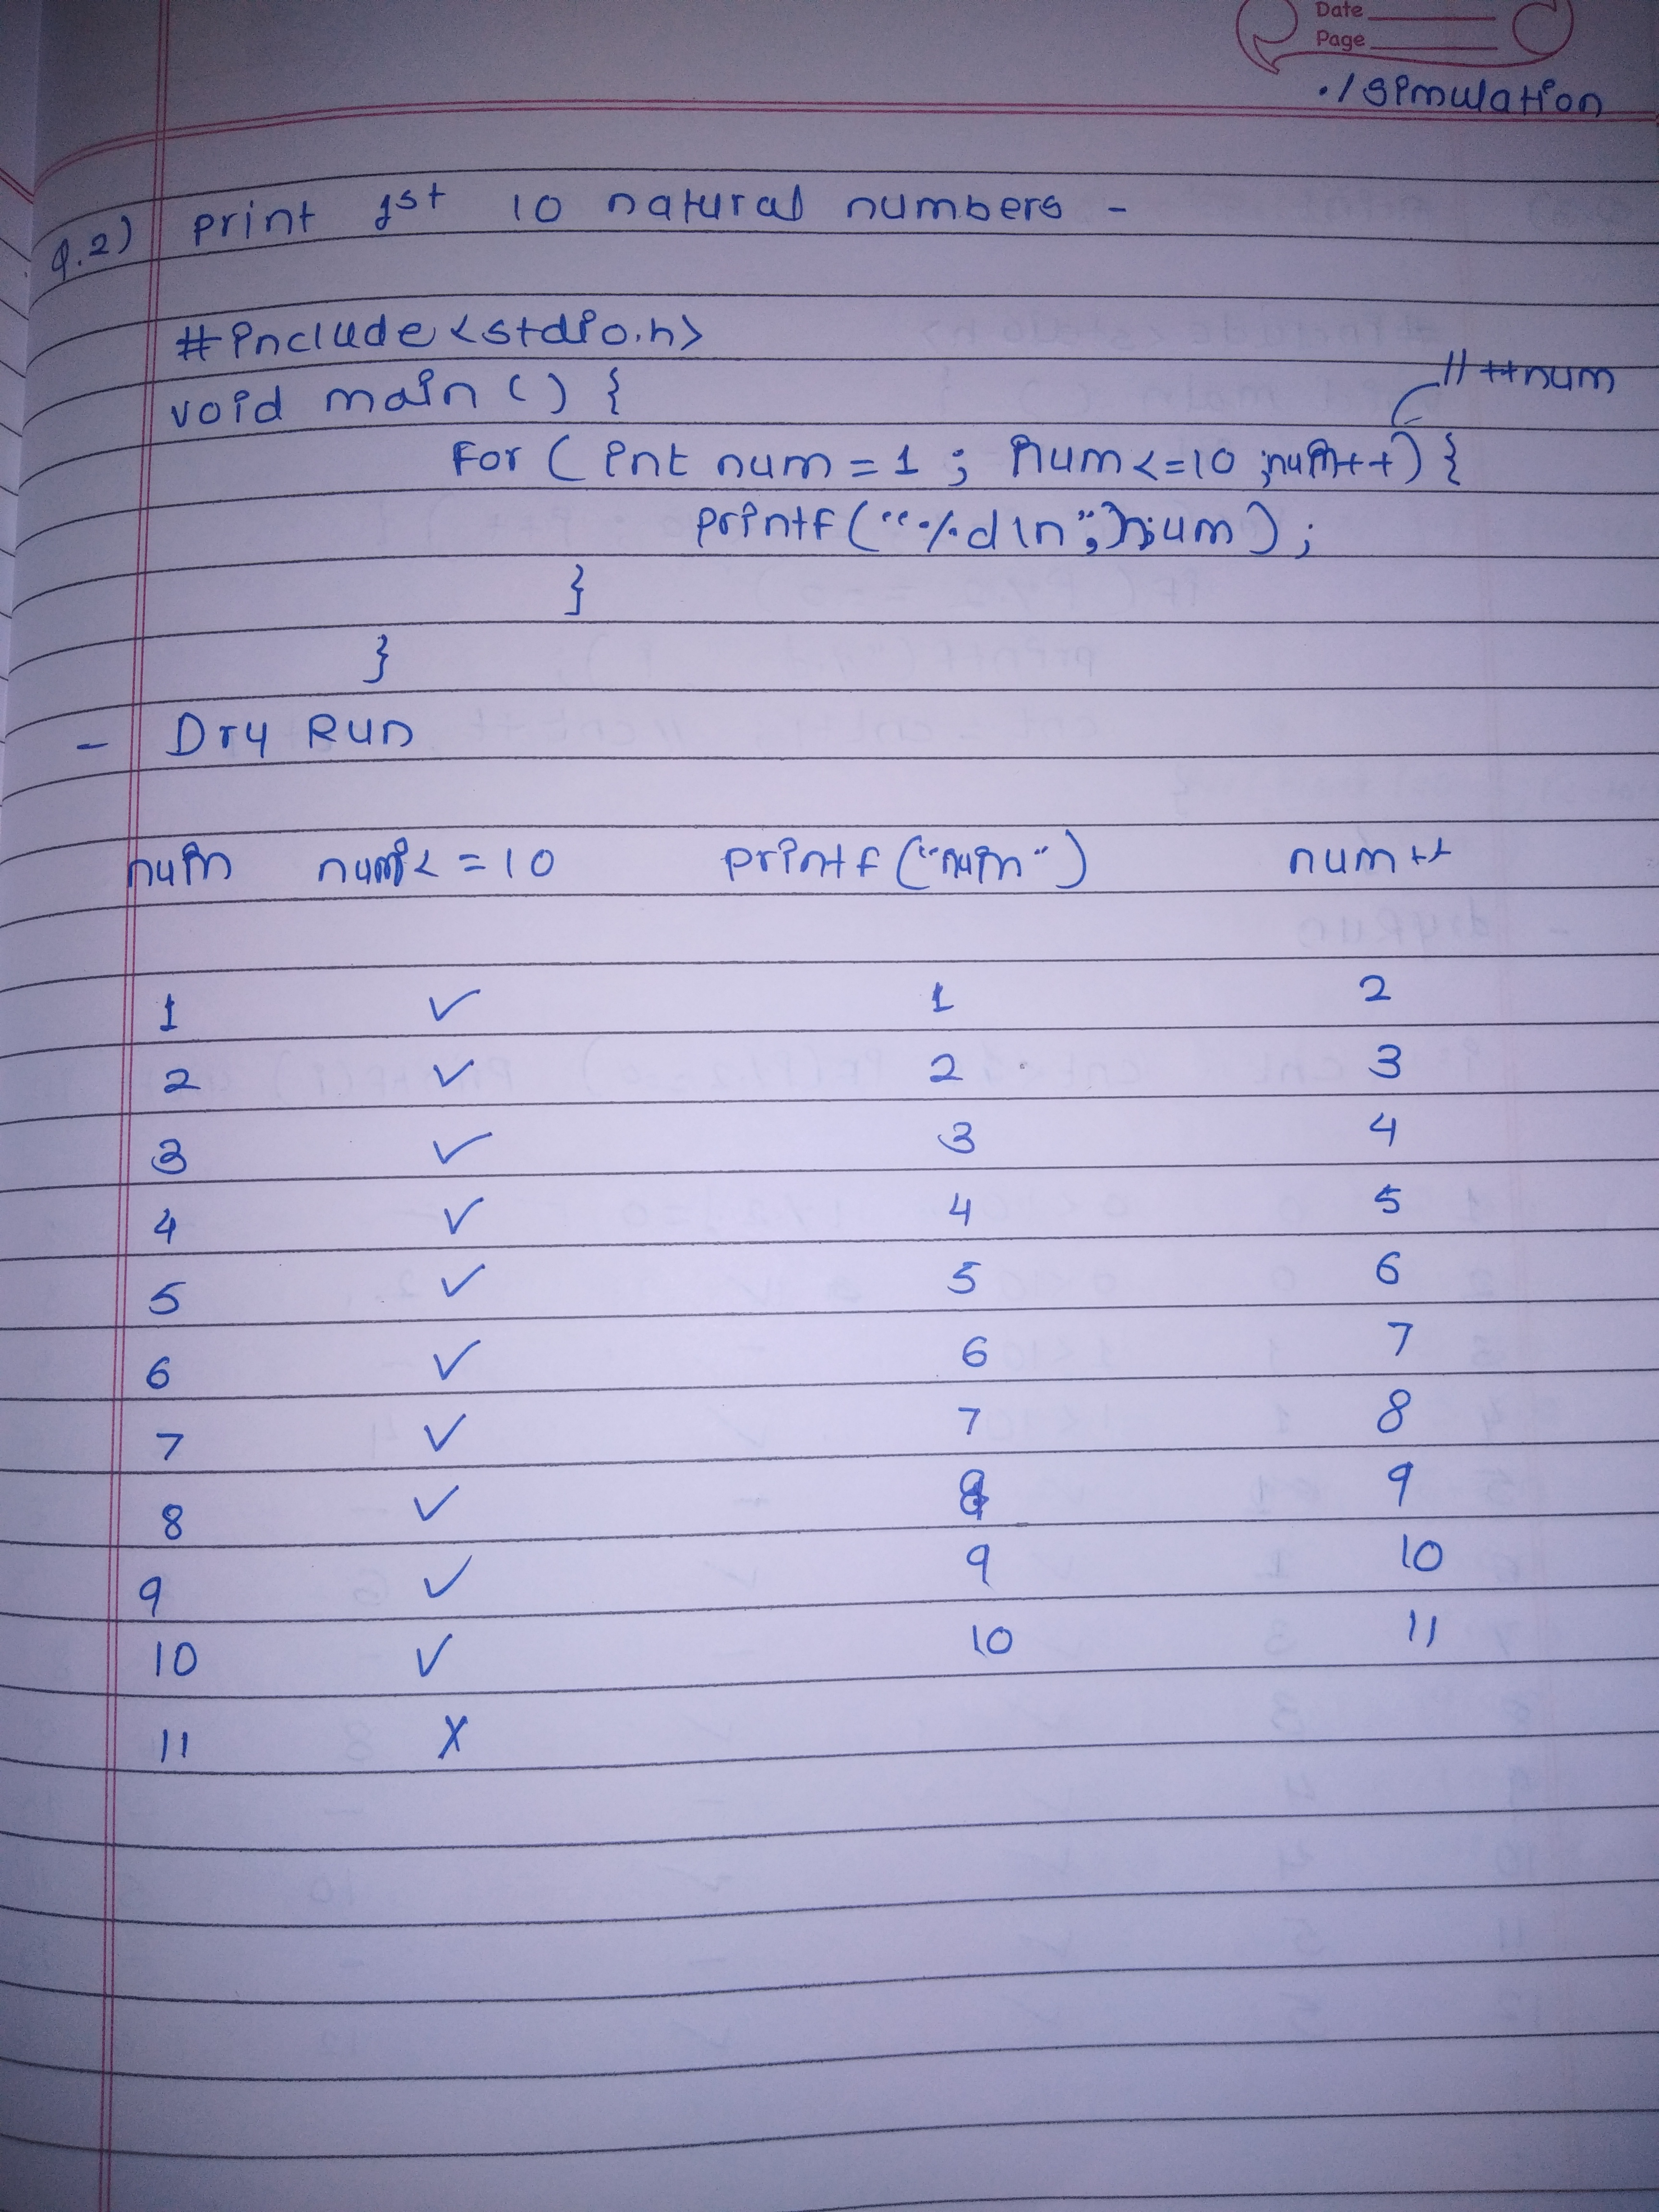 Date
Page
./simulation
Q.2) print 1st 10 natural numbers -
#include<stdio.h>
void main() {
//++num
for (int num = 1 ; num<=10 ;num++) {
printf("%d\n", num);
}
}
- Dry Run
num num<=10 printf("num") num++
1 ✓ 1 2
2 ✓ 2 3
3 ✓ 3 4
4 ✓ 4 5
5 ✓ 5 6
6 ✓ 6 7
7 ✓ 7 8
8 ✓ 8 9
9 ✓ 9 10
10 ✓ 10 11
11 X